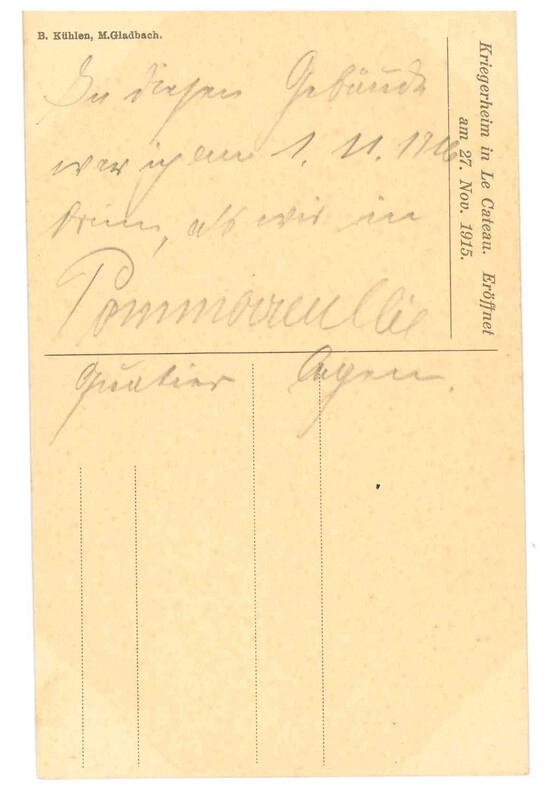 B. Kühlen, M.Gladbach.
Kriegerheim in Le Cateau. Eröffnet
am 27. Nov. 1915.
In diesen Gebäude
war ich am 1. 11. 1916
drin, als wir in
Pommereullie
Quatier lagen.